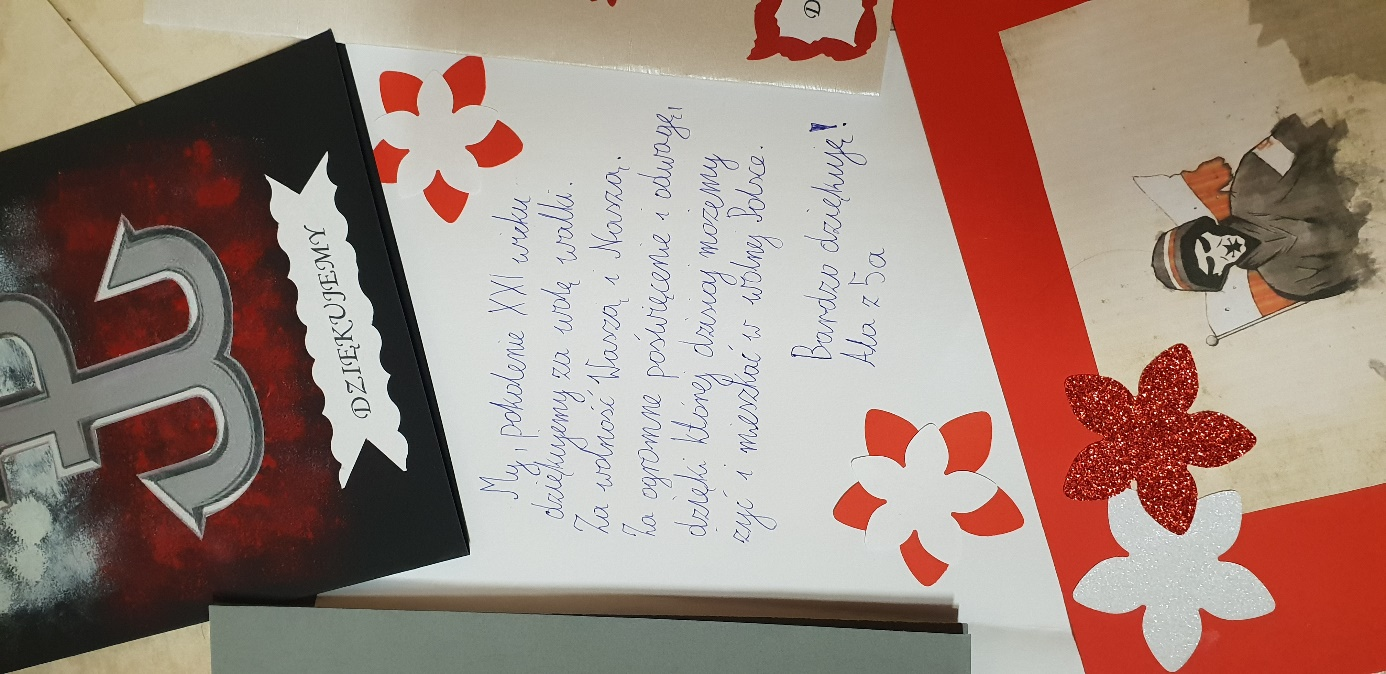 DZIĘKUJEMY
My, pokolenie XXI wieku
dziękujemy za wolę walki.
Za wolność Waszą i Naszą.
Za ogromne poświęcenie i odwagę,
dzięki której dzisiaj możemy
żyć i mieszkać w wolnej Polsce.
Bardzo dziękuję!
Ala z 5a